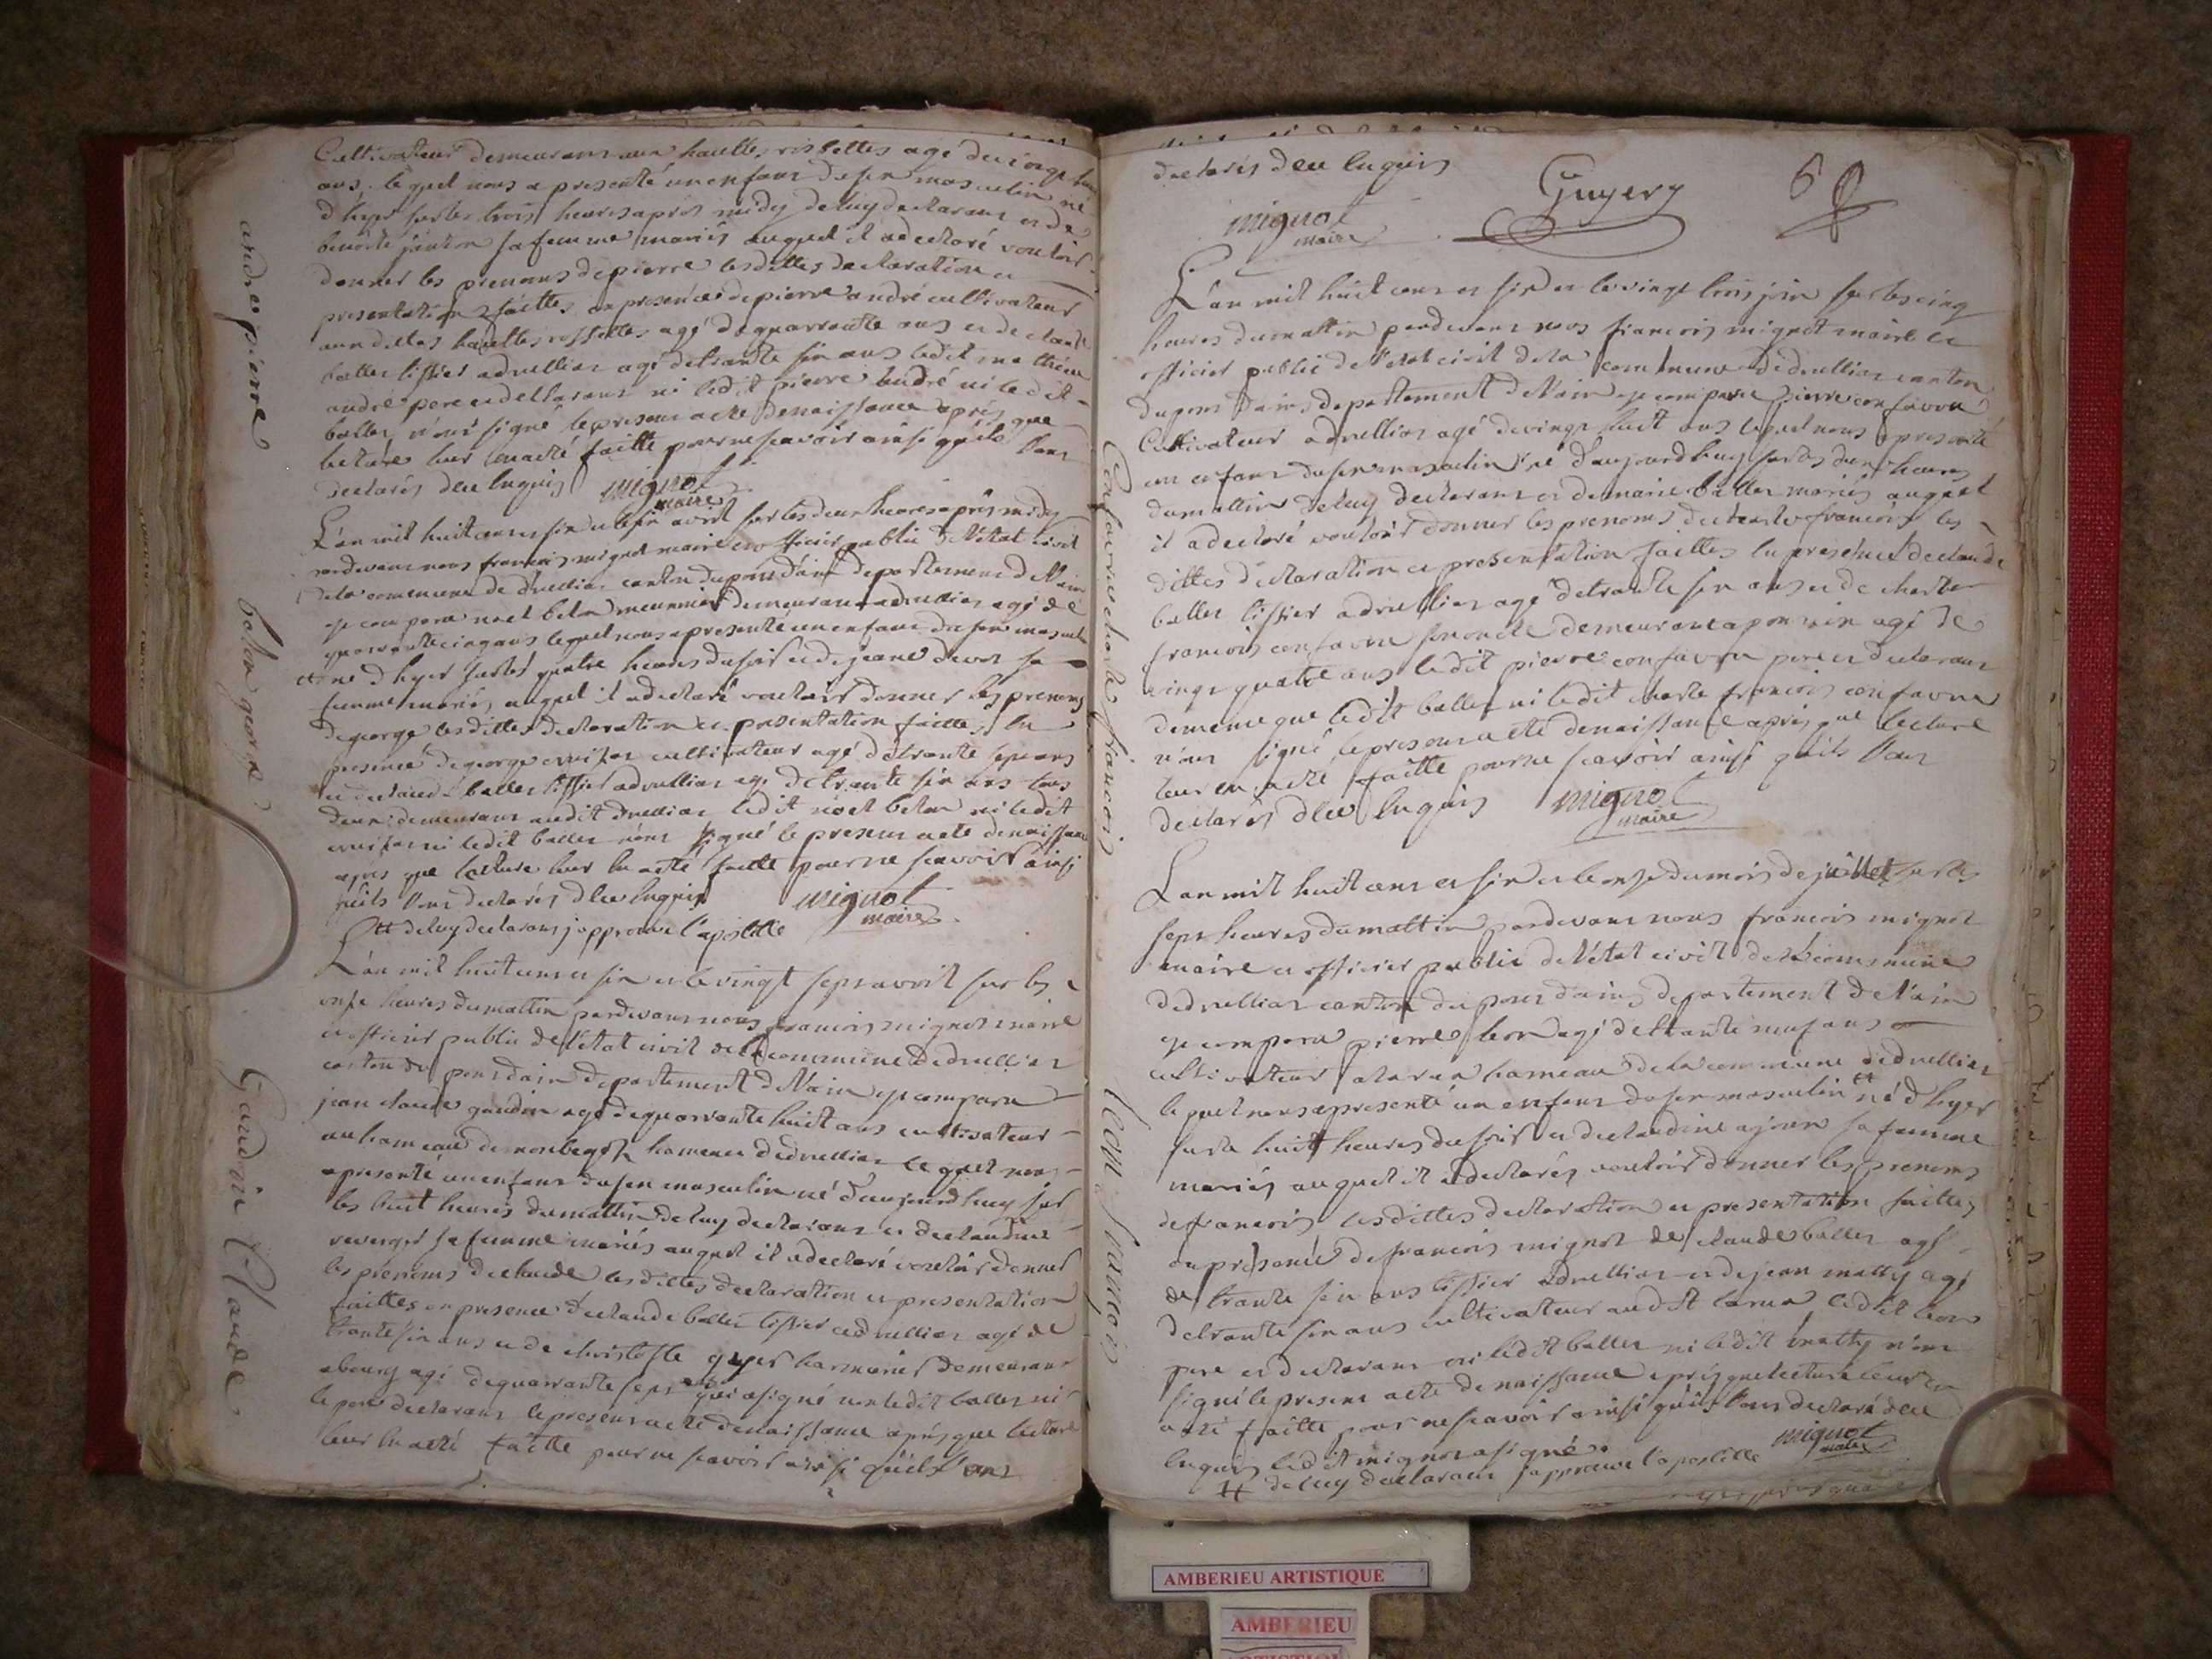 andre pierre
Cultivateur demeurant aux hauttes rissettes agé de
ans lequel nous a presenté un enfant du sexe masculin né
d'hyer sur les trois heures apres midy de luy declarant et de
benoite sa femme mariés auquel il a declaré vouloir
donner les prenoms de pierre lesdittes declaration et
presentation faittes en presence de pierre andré cultivateur
aux dittes hauttes agé de quarrante ans et de claude
ballet tissier a druillias agé de trante six ans ledit
andré pere et declarant ni ledit pierre andré ni ledit
ballet n'ont signé le present acte de naissance après que
lecture leur en a eté faitte pour ne scavoir ainsi qu'ils l'ont
declarés de ce enquis mignot
maire
belon george
L'an mil huit cent et six et le six avril sur les deux heures après midy
pardevant nous francois mignot maire et officier public de l'état civil
de la commune de druillias canton du pont d'ain departement de l'ain
est comparu noel belon meunier demeurant a druillias agé de
quarrante cinq ans lequel nous a presenté un enfant du sexe masculin
tt né d'hyer sur les quatre heures du soir et de jeane sa
femme mariés auquel il a declaré vouloir donner les prenoms
de george lesdittes declaration et presentation faittes en
presence de george cultivateur agé de trante sept ans
et de claude ballet tissier a druillias agé de trante six ans tous
deux demeurant audit druillias ledit noel belon ni ledit
ni ledit ballet n'ont signé le present acte de naissance
après que lecture leur en a eté faitte pour ne scavoir ainsi
qu'ils l'ont declarés de ce enquis mignot
maire
tt de luy declarant j'approuve l'apostille
Gaudin Claude
L'an mil huit cent et six et le vingt sept avril sur les
onze heures du mattin pardevant nous francois mignot maire
et officier public de l'état civil de la commune de druillias
canton du pont d'ain departement de l'ain est comparu
jean claude gaudin agé de quarrante huit ans cultivateur
au hameau de hameau de druillias lequel nous
a presenté un enfant du sexe masculin né d'aujourd'huy sur
les huit heures du mattin de luy declarant et de claudine
sa femme mariés auquel il a declaré vouloir donner
les prenoms de claude lesdittes declaration et presentation
faittes en presence de claude ballet tissier a druillias agé de
trante six ans et de christofle guyer demeurant
a bourg agé de quarrante sept qui a signé non ledit ballet ni
le pere declarant le present acte de naissance après que lecture
leur en a eté faitte pour ne scavoir ainsi qu'ils l'ont
declarés de ce enquis
Guyery
6
mignot
maire
Confavre charle francois
L'an mil huit cent et six et le vingt trois juin sur les cinq
heures du mattin pardevant nous francois mignot maire et
officier public de l'état civil de la commune de druillias canton
du pont d'ain departement de l'ain est comparu pierre confavre
Cultivateur a druillias agé de vingt huit ans lequel nous a presenté
un enfant du sexe masculin né d'aujourd'huy sur les deux heures
du mattin de luy declarant et de marie ballet mariés auquel
il a declaré vouloir donner les prenoms de charle francois les
dittes declaration et presentation faittes en presence de claude
ballet tissier a druillias agé de trante six ans et de charle
francois confavre son oncle demeurant a agé de
vingt quatre ans ledit pierre confavre pere et declarant
de meme que ledit ballet ni ledit charle francois confavre
n'ont signé le present acte de naissance après que lecture
leur en a eté faitte pour ne scavoir ainsi qu'ils l'ont
declarés de ce enquis mignot
maire
leon francois
L'an mil huit cent et six et le onze du mois de juillet sur les
sept heures du mattin pardevant nous francois mignot
maire et officier public de l'état civil de la commune
de druillias canton du pont d'ain departement de l'ain
est comparu pierre leon agé de trante neuf ans
cultivateur a hameau de la commune de druillias
lequel nous a presenté un enfant du sexe masculin tt né d'hyer
sur les huit heures du soir et de claudine sa femme
mariés auquel il a declarés vouloir donner les prenoms
de francois lesdittes declaration et presentation faittes
en presence de francois mignot de claude ballet agé
de trante six ans tissier a druillias et de jean mathy agé
de trante six ans cultivateur audit ledit leon
pere et declarant ni ledit ballet ni ledit mathy n'ont
signé le present acte de naissance après que lecture leur en
a eté faitte pour ne scavoir ainsi qu'ils l'ont declaré de ce
enquis ledit mignot a signé mignot
maire
tt de luy declarant j'approuve l'apostille
AMBERIEU ARTISTIQUE
AMBERIEU
ARTISTIQUE